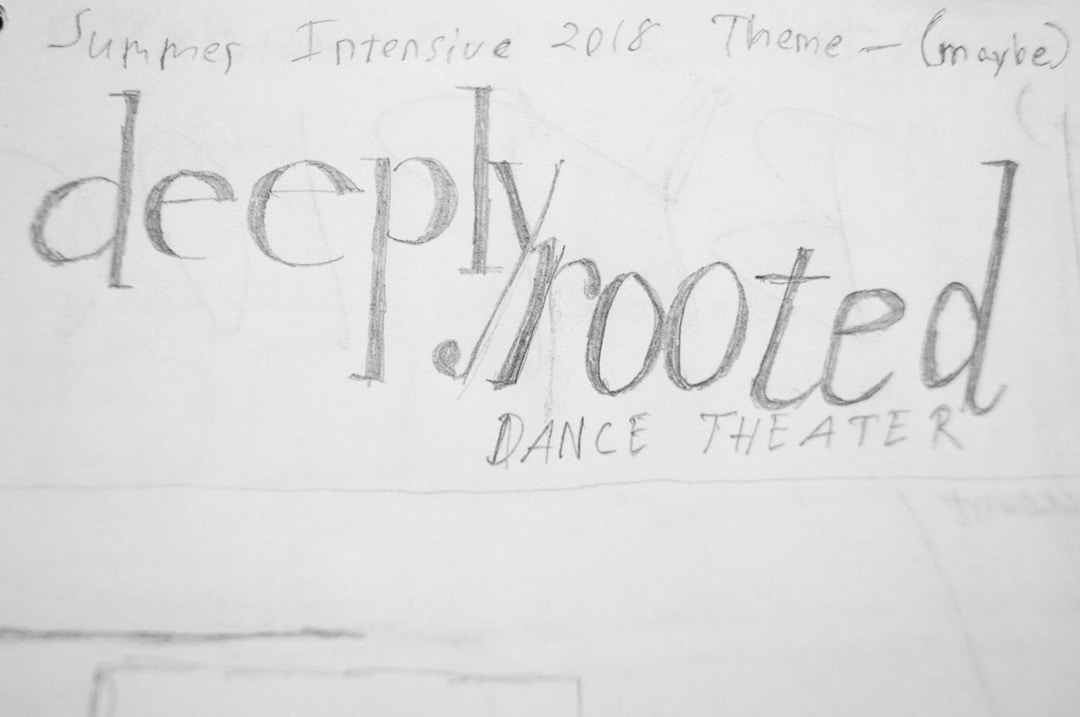 Summer Intensive 2018 Theme — (maybe)
deeply
rooted
DANCE THEATER